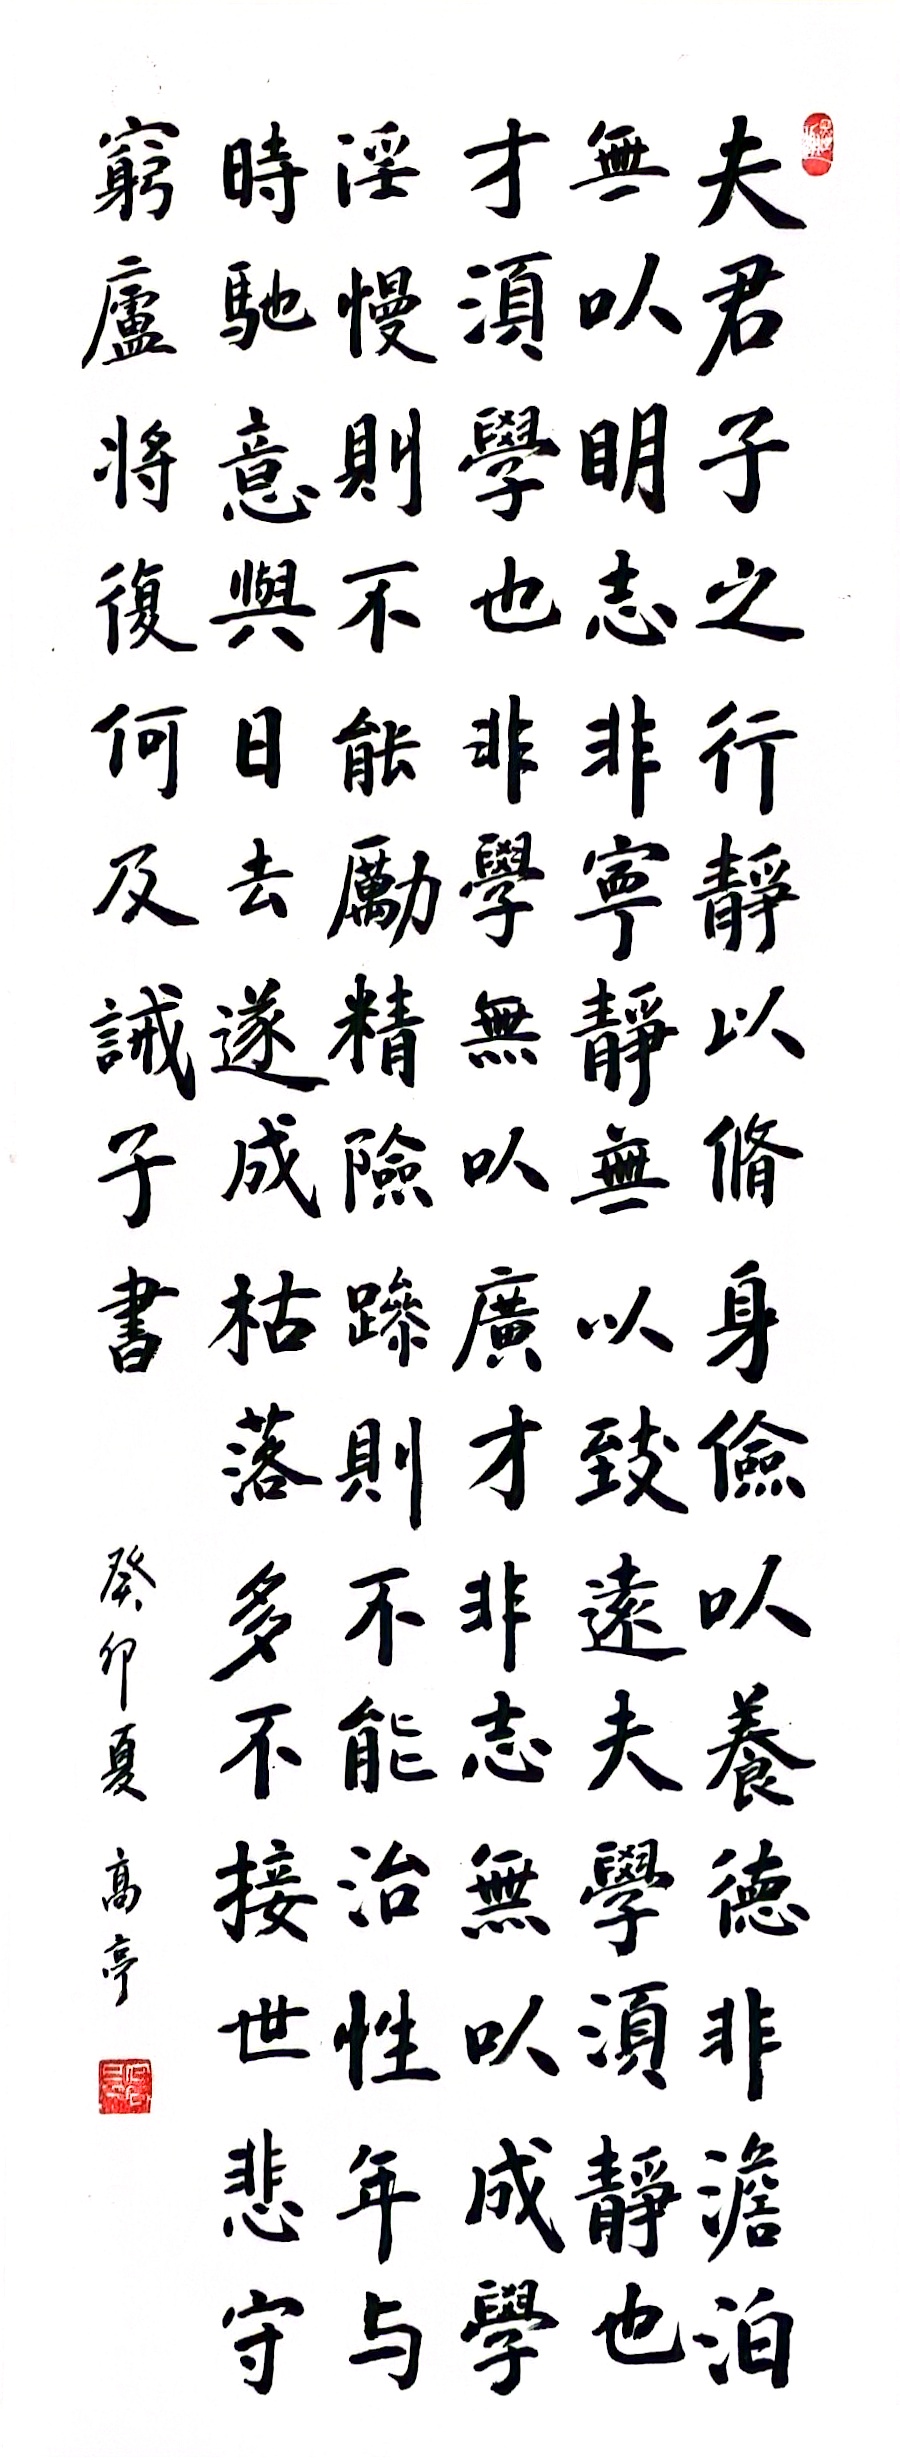 夫君子之行靜以脩身儉以養德非澹泊
無以明志非寧靜無以致遠夫學須靜也
才須學也非學無以廣才非志無以成學
淫慢則不能勵精險躁則不能治性年与
時馳意與日去遂成枯落多不接世悲守
窮廬將復何及誡子書
癸卯夏 高亭